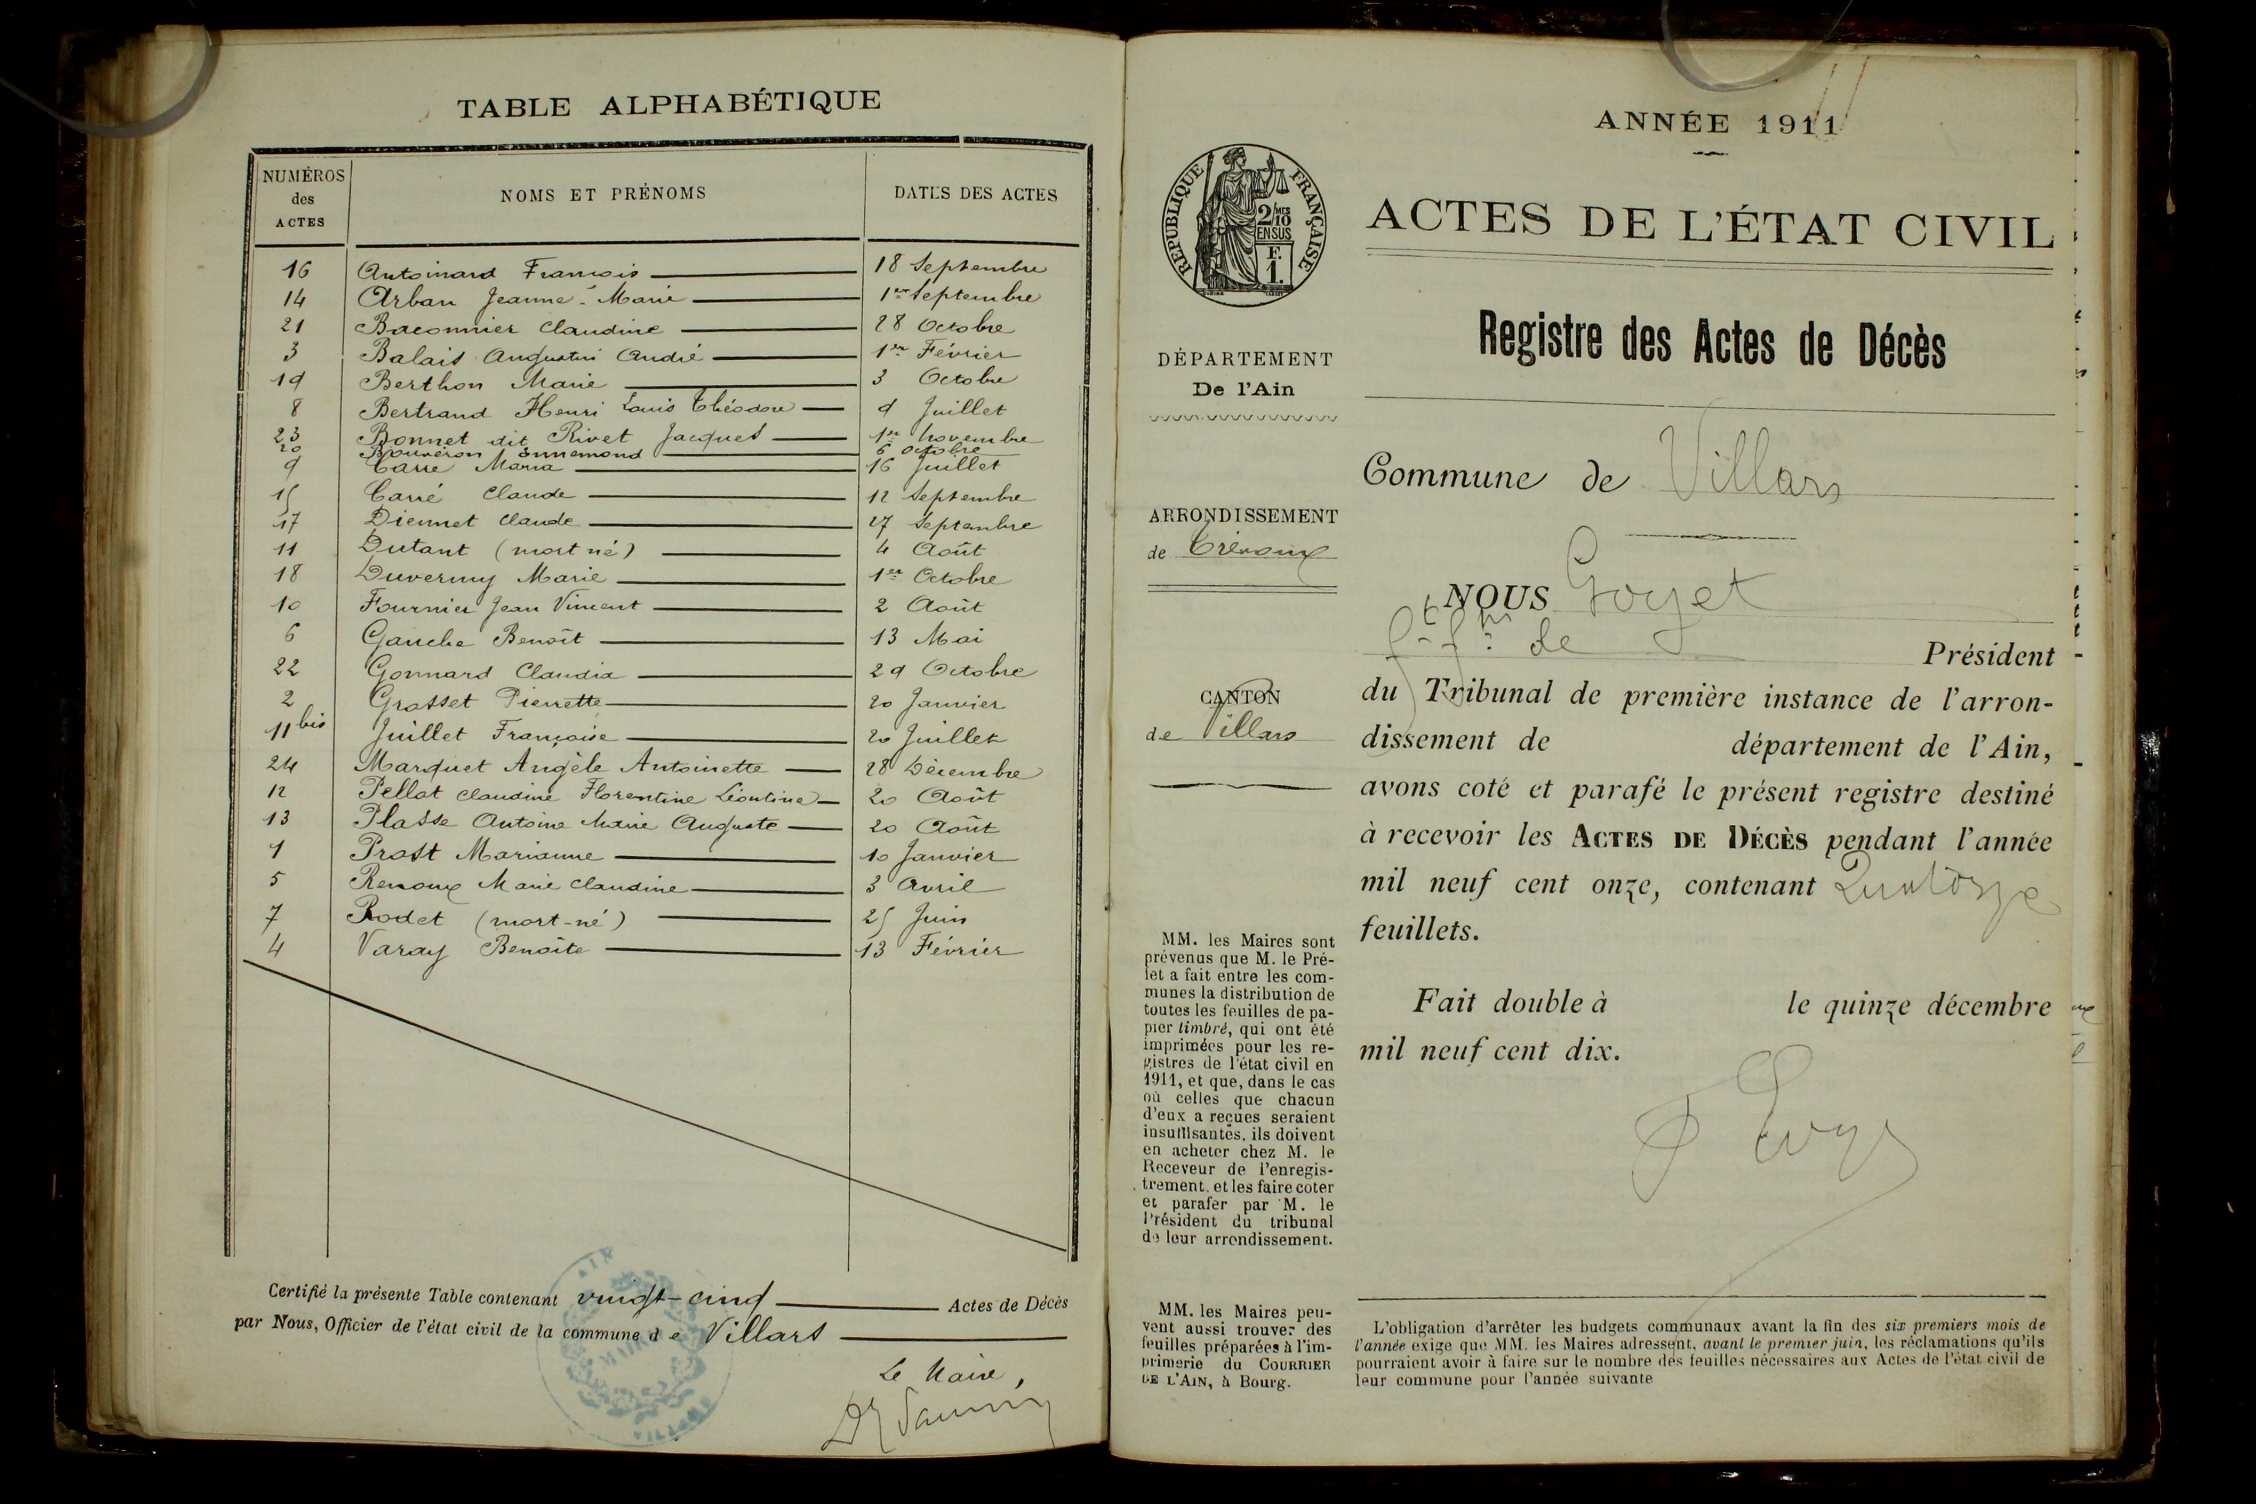 TABLE ALPHABÉTIQUE
NUMÉROS des ACTES NOMS ET PRÉNOMS DATES DES ACTES
16 Antoinard François 18 Septembre
14 Arban Jeanne-Marie 1er Septembre
21 Baconnier Claudine 28 Octobre
3 Balais Augustin André 1er Février
19 Berthon Marie 3 Octobre
8 Bertrand Henri Louis Théodore 9 Juillet
23 Bonnet dit Rivet Jacques 1er Novembre
20 Bouveron Ennemond 6 Octobre
9 Carre Maria 16 Juillet
15 Carré Claude 12 Septembre
17 Diennet Claude 27 Septembre
11 Dutant (mort né) 4 Août
18 Duvernay Marie 1er Octobre
10 Fournier Jean Vincent 2 Août
6 Gauche Benoît 13 Mai
22 Gonnard Claudia 29 Octobre
2 Grosset Pierrette 20 Janvier
11 bis Juillet Françoise 20 Juillet
24 Marquet Angèle Antoinette 28 Décembre
12 Pellat Claudine Florentine Léontine 20 Août
13 Plasse Antoine Marie Auguste 20 Août
1 Prost Marianne 10 Janvier
5 Renoux Marie Claudine 3 Avril
7 Rodet (mort-né) 25 Juin
4 Varay Benoîte 13 Février
Certifié la présente Table contenant vingt-cinq Actes de Décès
par Nous, Officier de l'état civil de la commune de Villars
Le Maire,
MAIRIE
AIN
ANNÉE 1911
RÉPUBLIQUE FRANÇAISE
2/10 MES
EN SUS
F.
1.
ACTES DE L'ÉTAT CIVIL
Registre des Actes de Décès
DÉPARTEMENT
De l'Ain
ARRONDISSEMENT
de Trévoux
CANTON
de Villars
MM. les Maires sont
prévenus que M. le Pré-
fet a fait entre les com-
munes la distribution de
toutes les feuilles de pa-
pier timbré, qui ont été
imprimées pour les re-
gistres de l'état civil en
1911, et que, dans le cas
où celles que chacun
d'eux a reçues seraient
insuffisantes, ils doivent
en acheter chez M. le
Receveur de l'enregis-
trement, et les faire coter
et parafer par M. le
Président du tribunal
de leur arrondissement.
MM. les Maires peu-
vent aussi trouver des
feuilles préparées à l'im-
primerie du COURRIER
DE L'AIN, à Bourg.
Commune de Villars
NOUS Goyet
ft fns de
Président
du Tribunal de première instance de l'arron-
dissement de département de l'Ain,
avons coté et parafé le présent registre destiné
à recevoir les ACTES DE DÉCÈS pendant l'année
mil neuf cent onze, contenant Quatorze
feuillets.
Fait double à le quinze décembre
mil neuf cent dix.
L'obligation d'arrêter les budgets communaux avant la fin des six premiers mois de
l'année exige que MM. les Maires adressent, avant le premier juin, les réclamations qu'ils
pourraient avoir à faire sur le nombre des feuilles nécessaires aux Actes de l'état civil de
leur commune pour l'année suivante